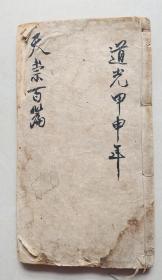 道光甲申年
天崇百篇